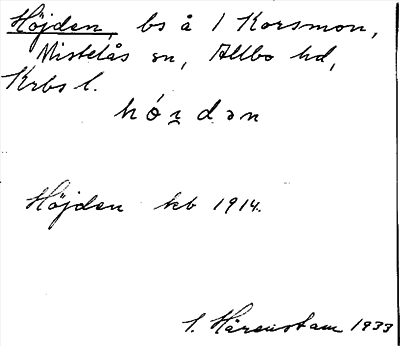 Höjden, bs å 1 Korsmon,
Mistelås sn, Allbo hd,
Krbs l.
hó̱i̯dən
Höjden kb 1914.
S. Hårenstam 1933